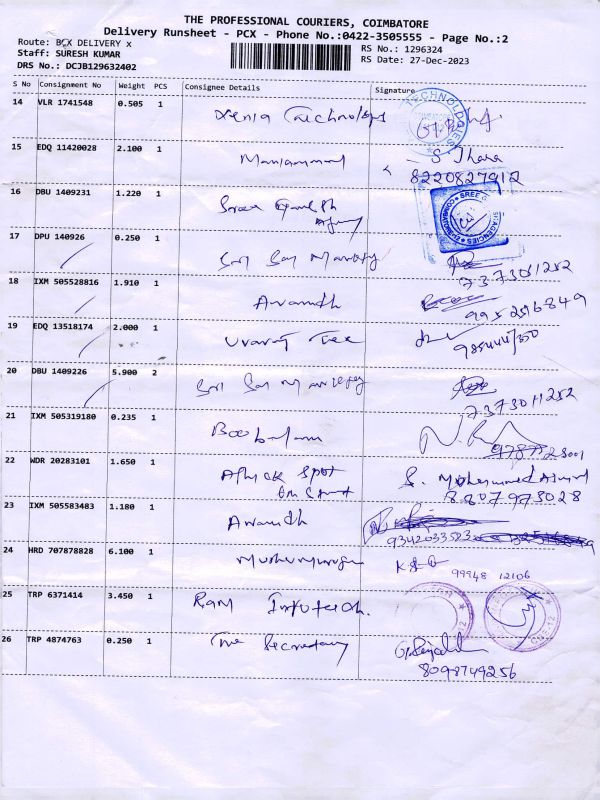 THE PROFESSIONAL COURIERS, COIMBATORE
Delivery Runsheet - PCX - Phone No.:0422-3505555 - Page No.:2
Route: BCX DELIVERY x
Staff: SURESH KUMAR
DRS No.: DCJB129632402
RS No.: 1296324
RS Date: 27-Dec-2023
S No Consignment No Weight PCS Consignee Details Signature
14 VLR 1741548 0.505 1 Xenia Technology
TECHNOLOGIES
15 EDQ 11420028 2.100 1
S Thara
8220827912
16 DBU 1409231 1.220 1 Sree Ganesh
Agency
17 DPU 140926 0.250 1 Sri Sai Marketing
7373011252
18 IXM 505528816 1.910 1 Ananth
995296849
19 EDQ 13518174 2.000 1 Tex
20 DBU 1409226 5.900 2 Sri Sai Marketing
7373011252
21 IXM 505319180 0.235 1
22 WDR 20283101 1.650 1 Spot
8807973028
23 IXM 505583483 1.180 1 Ananth
9342033523
24 HRD 707878828 6.100 1 Muthumurugan
99948 12106
25 TRP 6371414 3.450 1 Ram Infotech.
26 TRP 4874763 0.250 1 The Secretary
8098749256